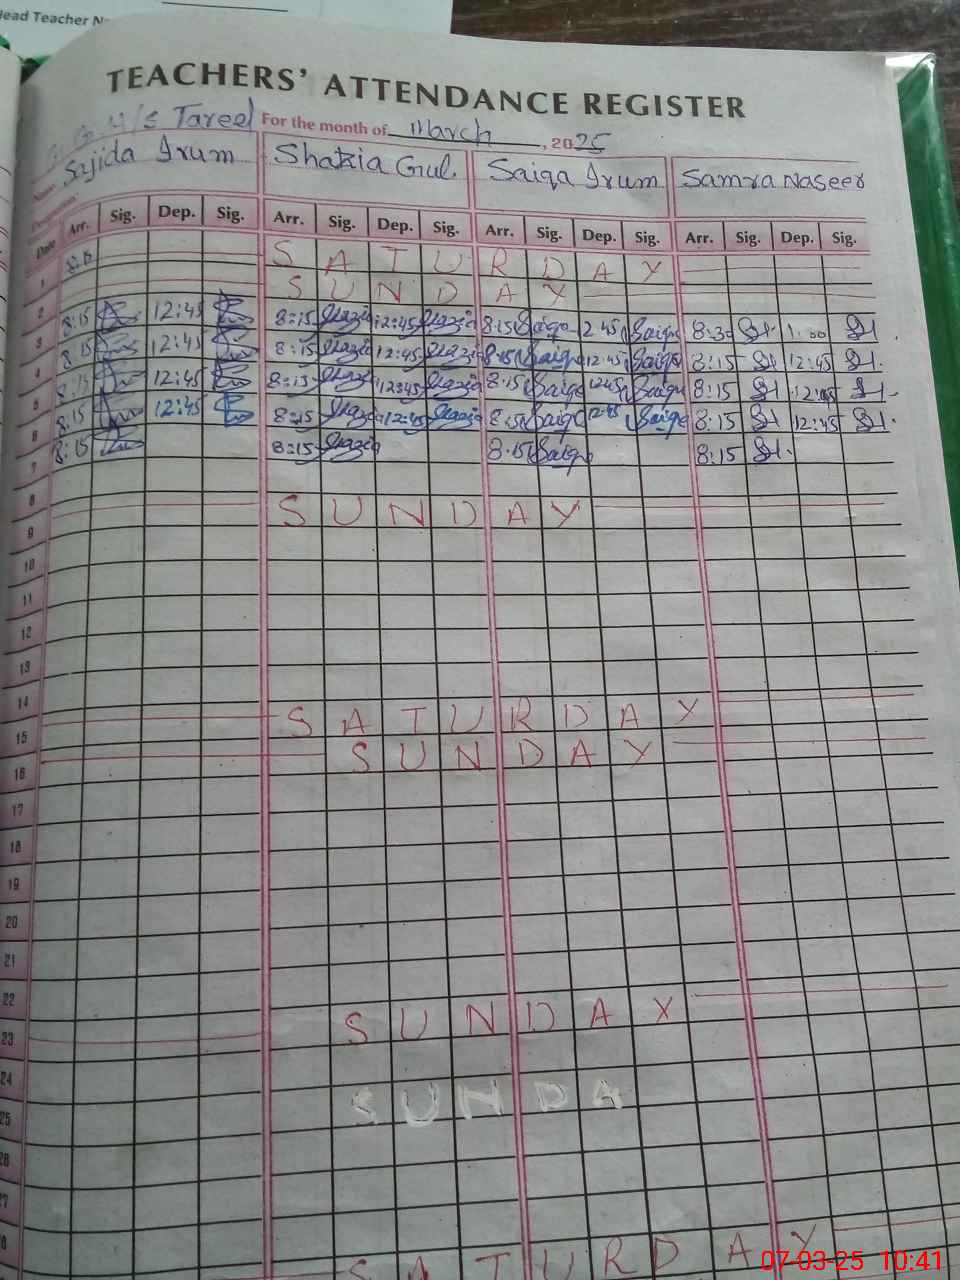 Head Teacher
TEACHERS' ATTENDANCE REGISTER
G.G.H/S Tareel For the month of March, 2025
Name: Sajida Irum Shazia Gul. Saiqa Irum Samra Naseer
Designation:
Date Arr. Sig. Dep. Sig. Arr. Sig. Dep. Sig. Arr. Sig. Dep. Sig. Arr. Sig. Dep. Sig.
1 8:15 SATURDAY
2 SUNDAY
3 8:15 12:45 8:15 Shazia 12:45 Shazia 8:15 Saiqa 2:45 Saiqa 8:30 1:00
4 8:15 12:45 8:15 Shazia 12:45 Shazia 8:15 Saiqa 12:45 Saiqa 8:15 12:45
5 8:15 12:45 8:15 Shazia 12:45 Shazia 8:15 Saiqa 12:45 Saiqa 8:15 12:45
6 8:15 12:45 8:15 Shazia 12:45 Shazia 8:15 Saiqa 12:45 Saiqa 8:15 12:45
7 8:15 8:15 Shazia 8:15 Saiqa 8:15
8
9 SUNDAY
10
11
12
13
14
15 SATURDAY
16 SUNDAY
17
18
19
20
21
22
23 SUNDAY
24
25 SUNDA
26
27
28
SATURDAY
07-03-25 10:41